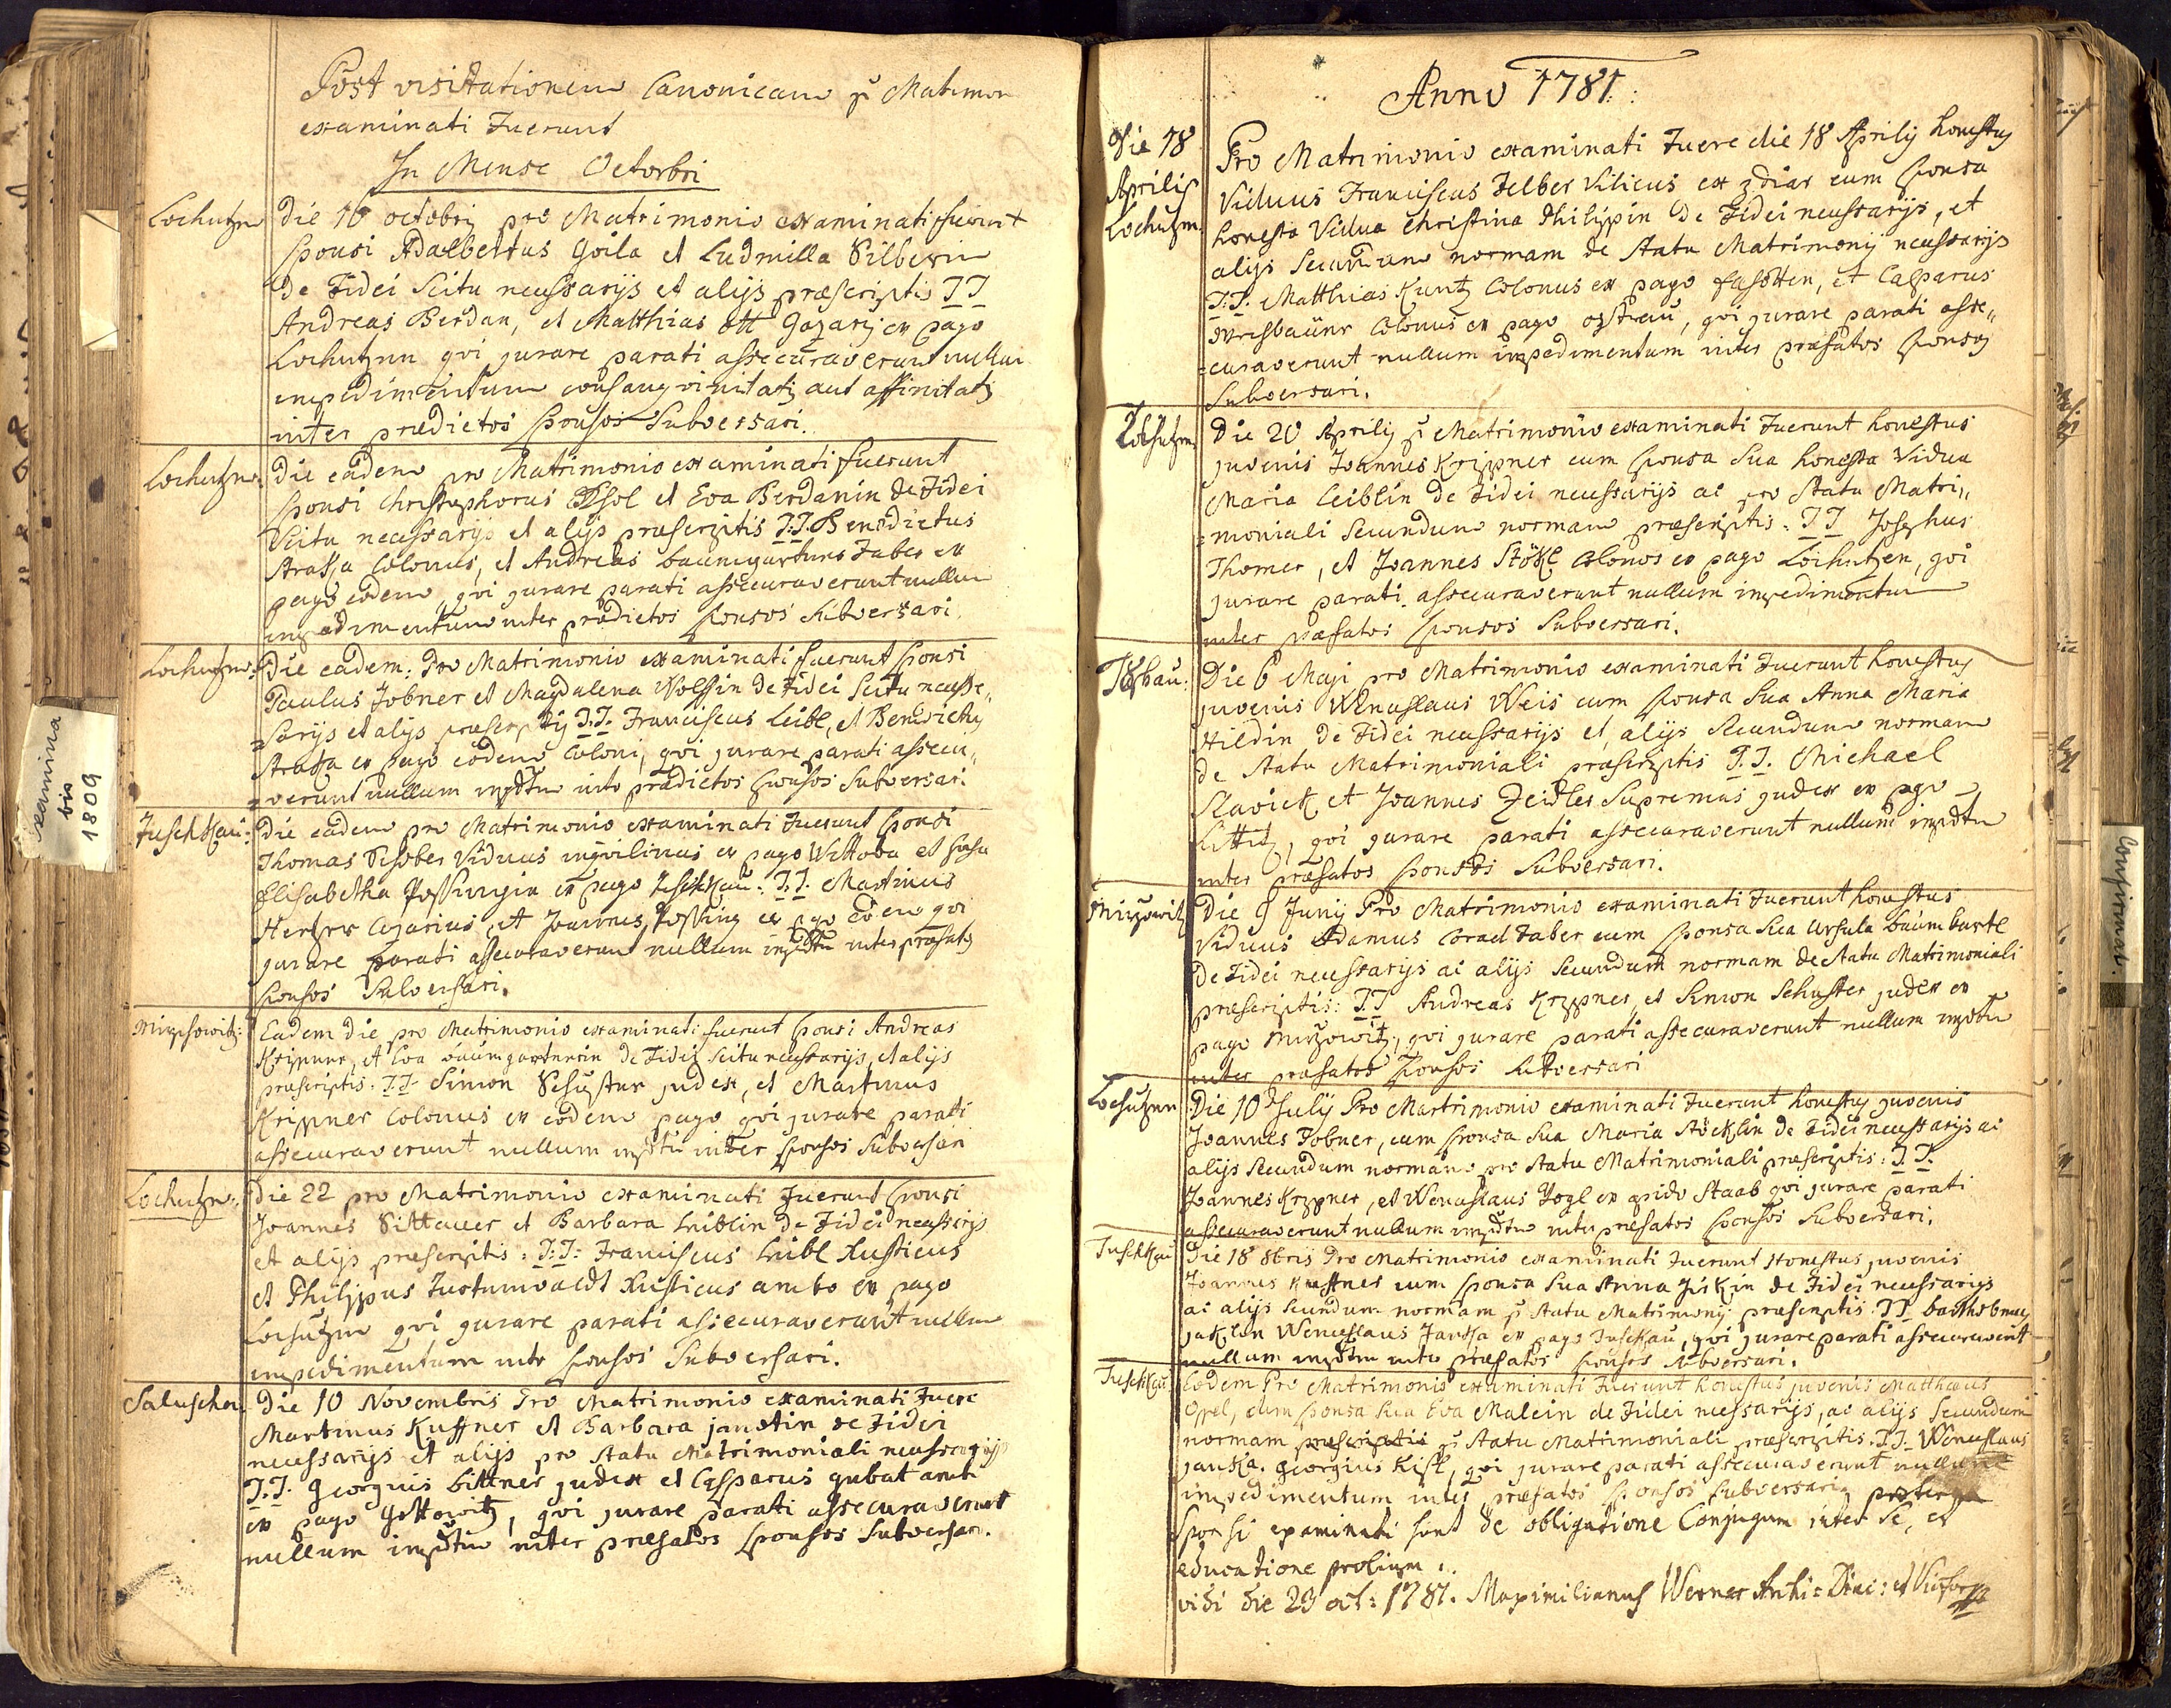 Post visitationem Canonicam p Matrimon
examinati Fuerunt
In Mense Octobri
Lochutzn
Die 16 octobris pro Matrimonio examinati fuerunt
sponsi Adalbertus Goila et Ludmilla Silberin
de Fidei Scitu necessarijs et alijs præscriptis TT
Andreas Berdan, et Matthias ott Gazarij ex pago
Lochutznn qvi jurare parati assecuraverunt nullum
impedimentum consangvinitatis aut affinitatis
inter prædictos Sponsos Subversari.
Lochutzn.
Die eadem pro Matrimonio examinati fuerunt
sponsi Christophorus et Eva Berdanin de Fidei
Scitu necessarijs et alijs præscriptis T.T. Benedictus
Straka Colonus, et Andreas baumgartner Faber ex
pago eodem, qvi jurare parati assecuraverunt nullum
impedimentum inter prædictos sponsos Subversari.
Lochutzn:
Die eadem: Pro Matrimonio examinati fuerunt sponsi
Paulus Fobner et Magdalena Wolfin de Fidei Scitu necesse„
=sarijs et alijs præscriptis T.T. Franciscus Leibl, et Benedictus
Straka ex pago eodem Coloni, qvi jurare parati assecu„
=raverunt nullum impdtum inter prædictos sponsos Subversari.
Tuschkau:
Die eadem pro Matrimonio examinati Fuerunt sponsi
Thomas Viduus inqvilinus ex pago Wittowa et sponsa
Elisabetha Possingin ex pago Tuschkau: T.T. Martinus
Hertzer Cazarius, et Joannes Possing ex pgo eodem qvi
jurare parati assecuraverunt nullum impdtum inter præfatos
sponsos Subversari.
Mirschowitz:
Eadem die pro Matrimonio examinati fuerunt sponsi Andreas
Krippner, et Eva baumgartnerin de Fidei Scitu necessarijs, et alijs
præscriptis. T.T. Simon Schuster judex, et Martinus
Krippner Colonus ex eodem pago qvi jurare parati
assecuraverunt nullum impdtu inter sponsos Subversari
Lochutzn:
Die 22 pro Matrimonio examinati Fuerunt sponsi
Joannes Sittauer et Barbara Leiblin de Fidei necessarijs
et alijs præscriptis: T:T: Franciscus Leibl Rusticus
et Philippus Rusticus ambo ex pago
Lochutzn qvi jurare parati assecuraverunt nullum
impedimentum inter sponsos Subversari.
Saluschen.
Die 10 Novembris Pro Matrimonio examinati Fuere
Martinus Kuffner et Barbara janotin de Fidei
necessarijs et alijs pro statu Matrimoniali necessarijs
T.T. Georgius bittner judex et Casparus gubat ambo
ex pago Gottowitz, qvi jurare parati assecuraverunt
nullum impdtum inter præfatos sponsos Subversari.
Examina
bis
1809
Anno 1781:
Die 18
Aprilis
Lochutzn.
Pro Matrimonio examinati Fuere die 18 Aprilis honestus
Viduus Franciscus Felber Vilicus ex zdiar cum sponsa
honesta Vidua Christina Philippin de Fidei necessarijs, et
alijs Secundum normam de Statu Matrimonij necessarijs
T.T. Matthias Kuntz Colonus ex pago, et Casparus
Colonus ex pago ostrau, qvi jurare parati asse„
=curaverunt nullum impedimentum inter præfatos sponsos
Subversari.
Lochutzn.
Die 20 Aprilis p Matrimonio examinati Fuerunt honestus
juvenis Joannes Krippner cum sponsa Sua honesta Vidua
Maria Leiblin de Fidei necessarijs ac pro Statu Matri„
=moniali Secundum normam præscriptis: TT Josephus
Thomer, et Joannes Stökl Colonos ex pago Lochutzen, qvi
jurare parati assecuraverunt nullum impedimentum
inter præfatos sponsos Subversari.
Die 6 Maji pro Matrimonio examinati Fuerunt honestus
juvenis Wenceslaus Weis cum sponsa Sua Anna Maria
Hildin de Fidei necessarijs et alijs Secundum normam
de Statu Matrimoniali præscriptis T.T. Michael
Slavick et Joannes Zeidler Supremus judex ex pgo
Littitz, qvi jurare parati assecuraverunt nullum impdtum
inter præfatos sponsos Subversari.
Mirzowitz
Die 9 Junij Pro Matrimonio examinati Fuerunt honestus
Viduus Adamus Corad Faber cum sponsa Sua Ursula
de Fidei necessarijs ac alijs Secundum normam de Statu Matrimoniali
præscriptis: TT Andreas Krippner, et Simon Schuster judex ex
pago Mirzowitz, qvi jurare parati assecuraverunt nullum impdtum
inter præfatos sponsos Subversari
Lochutznn
Die 10 July Pro Martrimonio examinati Fuerunt honestus juvenis
Joannes Fobner, cum sponsa Sua Maria Stöcklin de Fidei necessarijs ac
alijs Secundum normam pro Statu Matrimoniali præscriptis: T.T.
Joannes Krippner, et Wenceslaus Vogl ex opido Staab qvi jurare parati
assecuraverunt nullum impdtum inter præfatos sponsos Subversari.
Tuschkau
Die 18 8bris Pro Matrimonio examinati Fuerunt Honestus juvenis
Joannes Kuffner cum sponsa Sua Anna de Fidei necessarijs
ac alijs Secundum normam p Statu Matrimonij præscriptis TT bartholomeus
Wenceslaus Janka ex pago Tuschkau, qvi jurare parati assecuraverunt
nullum impdtum inter præfatos sponsos Subversari.
Tuschkau
Eodem Pro Matrimonio examinati Fuerunt honestus juvenis Matthæus
Opel, cum sponsa Sua Eva Malein de Fidei necessarijs, ac alijs Secundum
normam præscriptis p Statu Matrimoniali præscriptis T.T. Wenceslaus
janka. Georgius Kisl, qvi jurare parati assecuraverunt nullum
impedimentum inter præfatos sponsos Subversari, præterea
sponsi examinati sunt de obligatione Conjugum inter se, et
educatione prolium.
vidi die 29 oct: 1781. Maximilianus Werner Archi: Diac: et Vic: for: